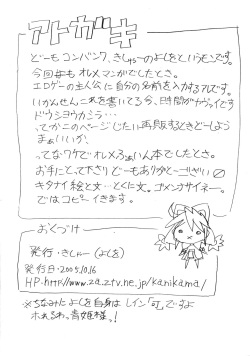 アトガキ
どーもコンバンワ、きしゅーのよしをというモンです。
今回本もオレメンがでしたとさ。
エロゲーの主人公に自分の名前を入力するアレです。
いかんせんこれを書いてる今、日時間がヤヴァイです
ドウシヨウカシラ…
ってかこのページじたい再販するときどーしよう
まぁいいか、
ってなワケでオレメろぁいん本でしたとさ。
お手にとって下さりどーもありがとーございい
キタナイ絵と文…とくに文。ゴメンナサイネー。
ではコピー行きます。
おくづけ
発行・きしゅー(よしを)
発行日・2005.10.16
HP・http://www.za.ztv.ne.jp/kanikama/
※ちなみによしを自身は レイン「可」ですよ
ホれるわ。青姫様。!